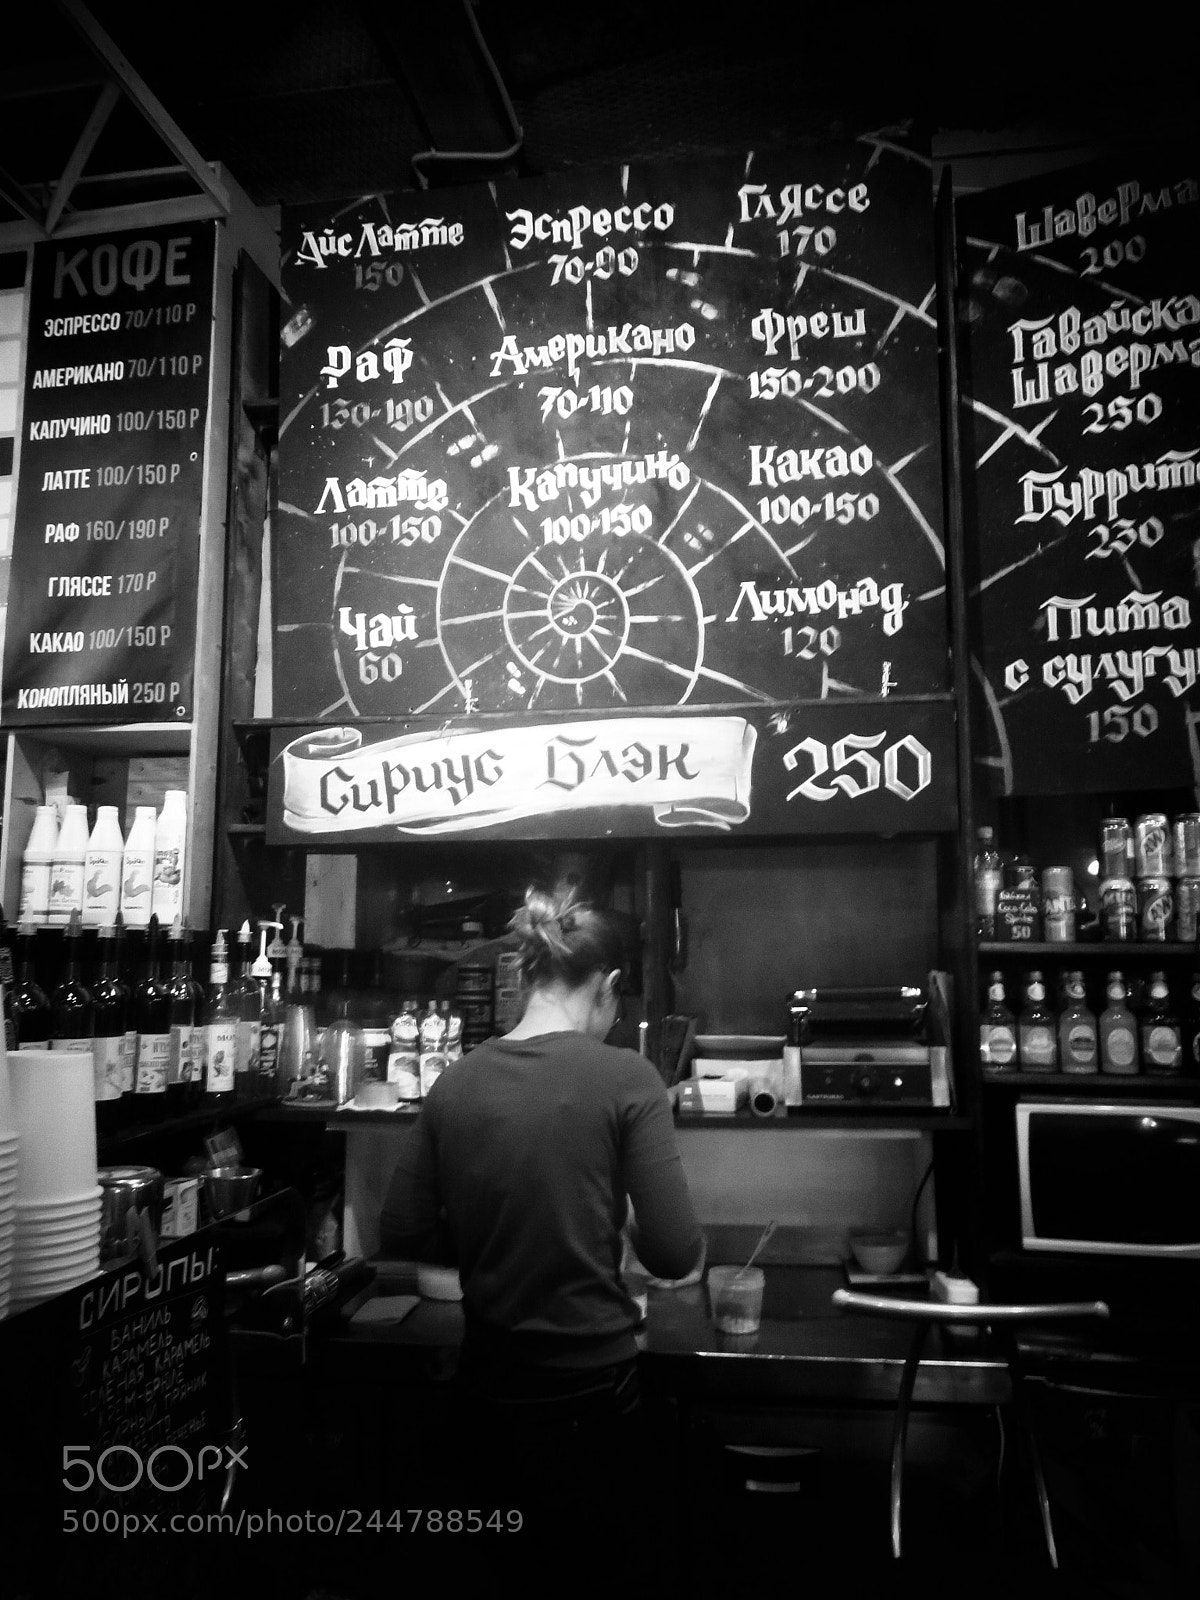 КОФЕ
ЭСПРЕССО 70/110 Р
АМЕРИКАНО 70/110 Р
КАПУЧИНО 100/150 Р
ЛАТТЕ 100/150 Р
РАФ 160/190 Р
ГЛЯССЕ 170 Р
КАКАО 100/150 Р
КОНОПЛЯНЫЙ 250 Р
Айс Латте
150
Эспрессо
70-90
Гляссе
170
Раф
130-190
Американо
70-110
Фреш
150-200
Латте
100-150
Капучино
100-150
Какао
100-150
Чай
60
Лимонад
120
Сириус Блэк 250
Шаверма
200
Гавайска
Шаверма
250
Буррито
230
Пита
с сулугу
150
Coca-Cola
Sprite
50
СИРОПЫ:
ВАНИЛЬ
КАРАМЕЛЬ
КАРАМЕЛЬ
500px
500px.com/photo/244788549